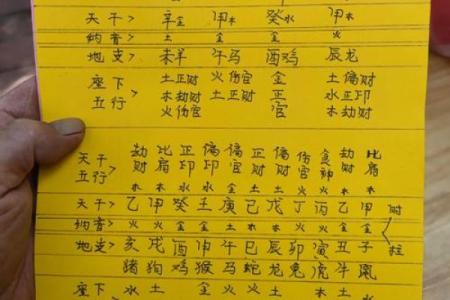 天干> 辛金 甲木 癸水 甲木
纳音> 土 金 金 火
地支> 未羊 午马 酉鸡 辰龙
座下 土正财 火伤官 金 土偏财
五行> 木劫财 土正财 正 水正印
火伤官 官 木劫财
天干 劫 比 正 偏 偏 正 偏 伤 食 劫 比
五行> 财 肩 印 印 官 财 财 官 神 财 肩
木 木 水 水 金 土 土 火 火 木 木
天干> 乙 甲 癸 壬 庚 己 戊 丁 丙 乙 甲 时
纳音> 火 火 金 金 土 土 火 火 金 金
地支> 亥 戌 酉 申 午 巳 辰 卯 寅 丑 子 柱
猪 狗 鸡 猴 马 蛇 龙 兔 虎 牛 鼠
座下 水 土 金 火 火 土